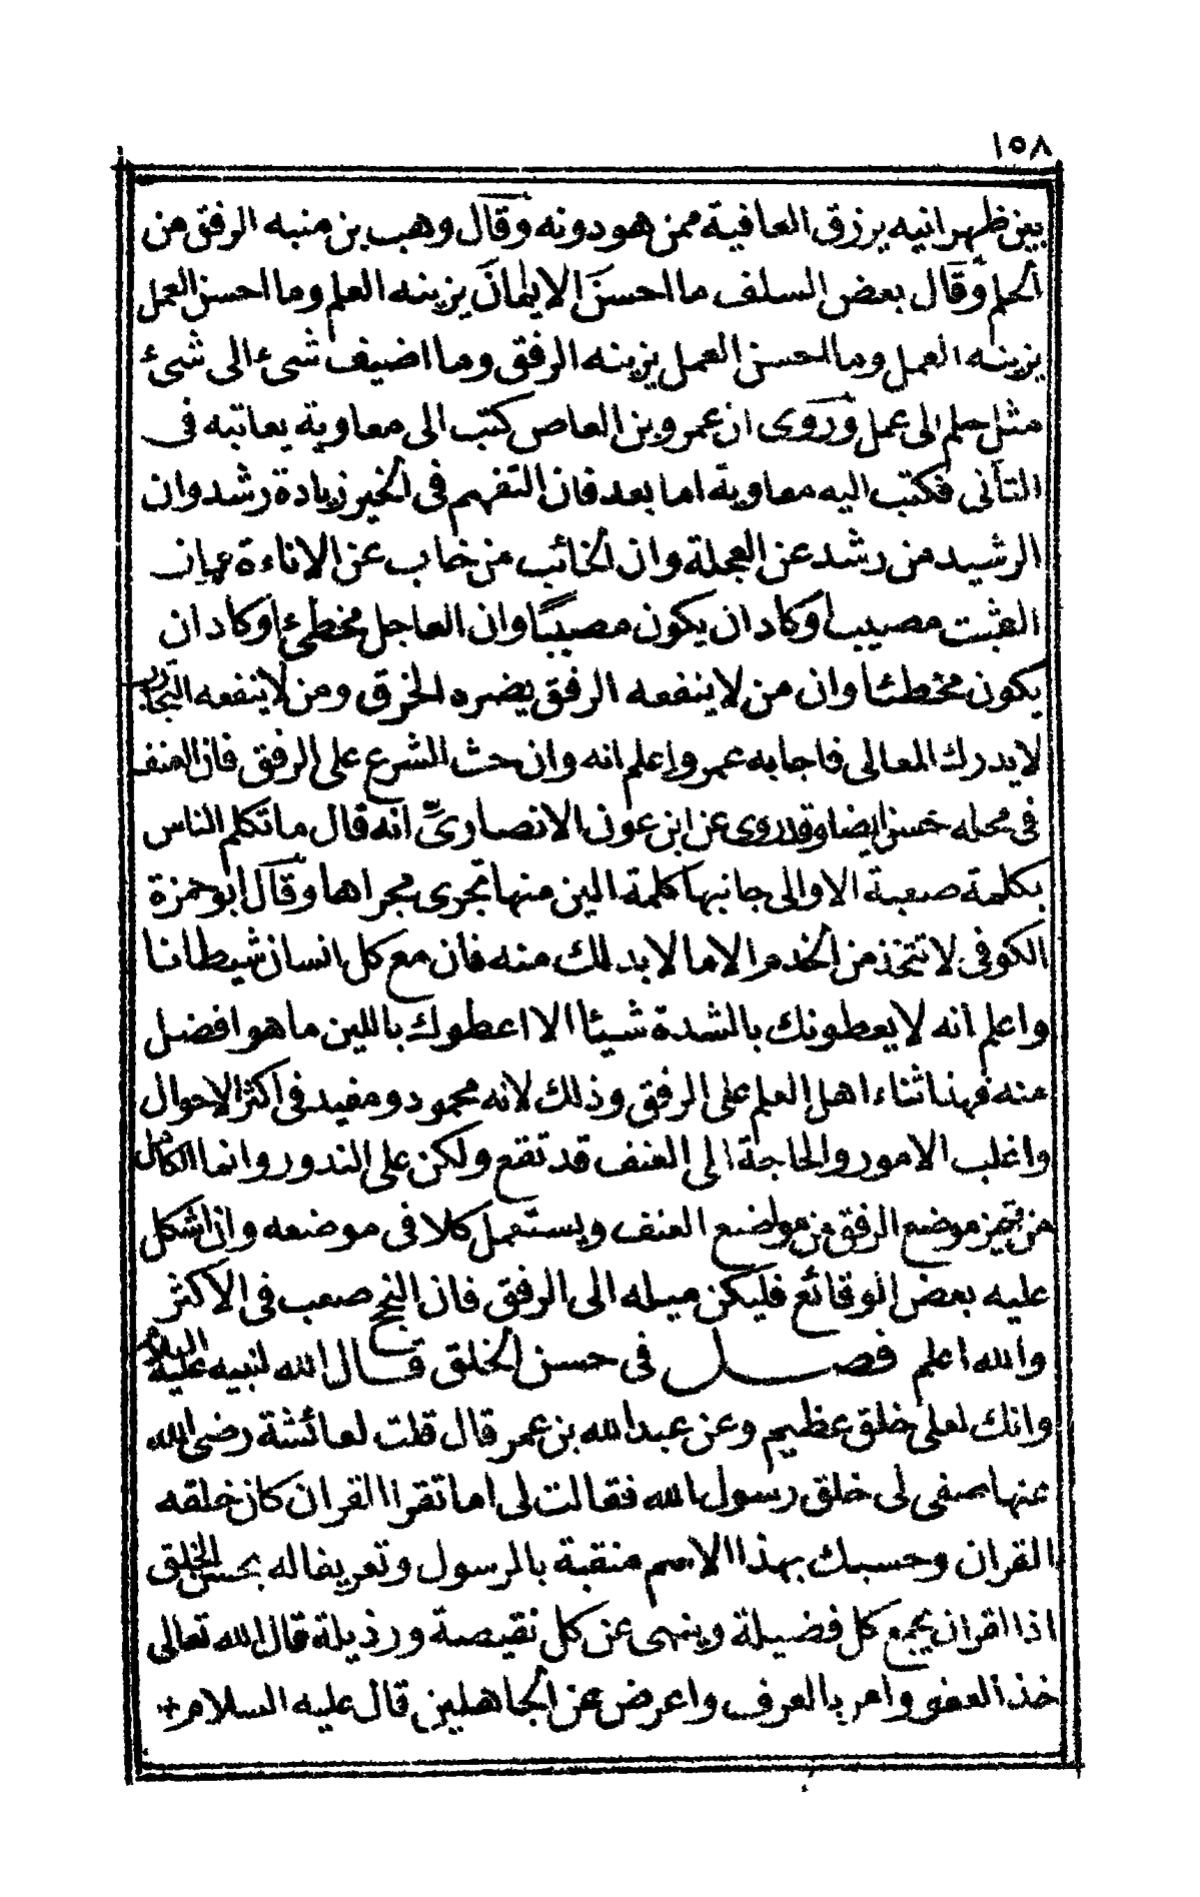 ١٥٨
بين ظهرانيه يرزق العافية ممن هو دونه وقال وهب بن منبه الرفق من
الحلم وقال بعض السلف ما احسن الايمان يزينه العلم وما احسن العمل
يزينه العمل وما احسن العمل يزينه الرفق وما اضيف شئ الى شئ
مثل حلم الى عمل وروى ان عمرو بن العاص كتب الى معاوية يعاتبه فى
التأنى فكتب اليه معاوية اما بعد فان التفهم فى الخير زيادة رشد وان
الرشيد من رشد عن العجلة وان الخائب من خاب عن الاناءة وان
المثبت مصيب اوكاد ان يكون مصيبًا وان العاجل مخطئ اوكاد ان
يكون مخطئا وان من لا ينفعه الرفق يضره الخرق ومن لا ينفعه التجارب
لا يدرك المعالى فاجابه عمر واعلم انه وان حث الشرع على الرفق فان العنف
فى محله حسن ايضا وقد روى عن ابن عون الانصارىّ انه قال ما تكلم الناس
بكلمة صعبة الا والى جانبها كلمة الين منها تجرى مجراها وقال ابو حمزة
الكوفى لا تتخذ من الخدم الا ما لا بد لك منه فأن مع كل انسان شيطانا
واعلم انه لا يعطونك بالشدة شيئا الا اعطوك باللين ما هو افضل
منه فهذا ثناء اهل العلم على الرفق وذلك لانه محمود ومفيد فى اكثر الاحوال
واغلب الامور والحاجة الى العنف قد تقع ولكن على الندور وانما الكامل
من تميز موضع الرفق عن مواضع العنف ويستعمل كلا فى موضعه وان اشكل
عليه بعض الوقائع فليكن ميله الى الرفق فان النجح صعب فى الاكثر
والله اعلم فصل فى حسن الخلق قال الله لنبيه عليه السلام
وانك لعلى خلق عظيم وعن عبد الله بن عمر قال قلت لعائشة رضى الله
عنها صفى لى خلق رسول الله فقالت لى اما تقرا القران كان خلقه
القران وحسبك بهذا الاسم منقبة بالرسول وتعريفا له بحسن الخلق
اذا القران يجمع كل فضيلة وينهى عن كل نقيصة ورذيلة قال الله تعالى
خذ العفو وامر بالعرف واعرض عن الجاهلين قال عليه السلام